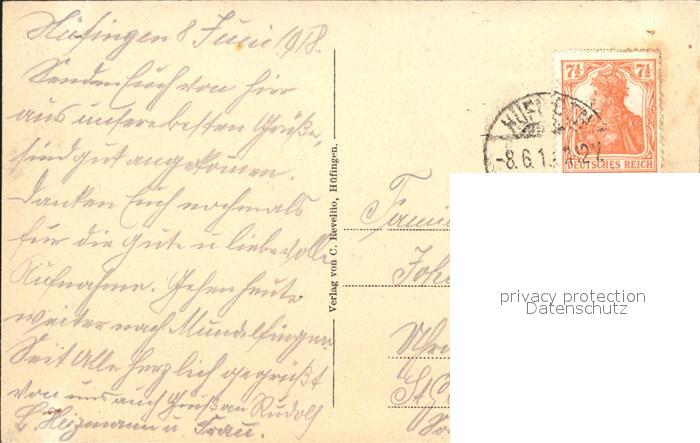 Hüfingen 8 Juni 1918.
Senden Euch von hier
aus unsere besten Grüße,
sind gut angekommen.
Danken Euch nochmals
für die Gute u liebevolle
Aufnahme. Gehen heute
weiter nach Mundelfingen
Seit Alle herzlich gegrüßt
von uns auch Gruß an Rudolf
Heizmann u Frau.
Verlag von C. Revellio, Hüfingen.
7½ 7½
DEUTSCHES REICH
HÜFINGEN
-8.6.1
Fami
Joh
Uhr
St Ge
privacy protection
Datenschutz